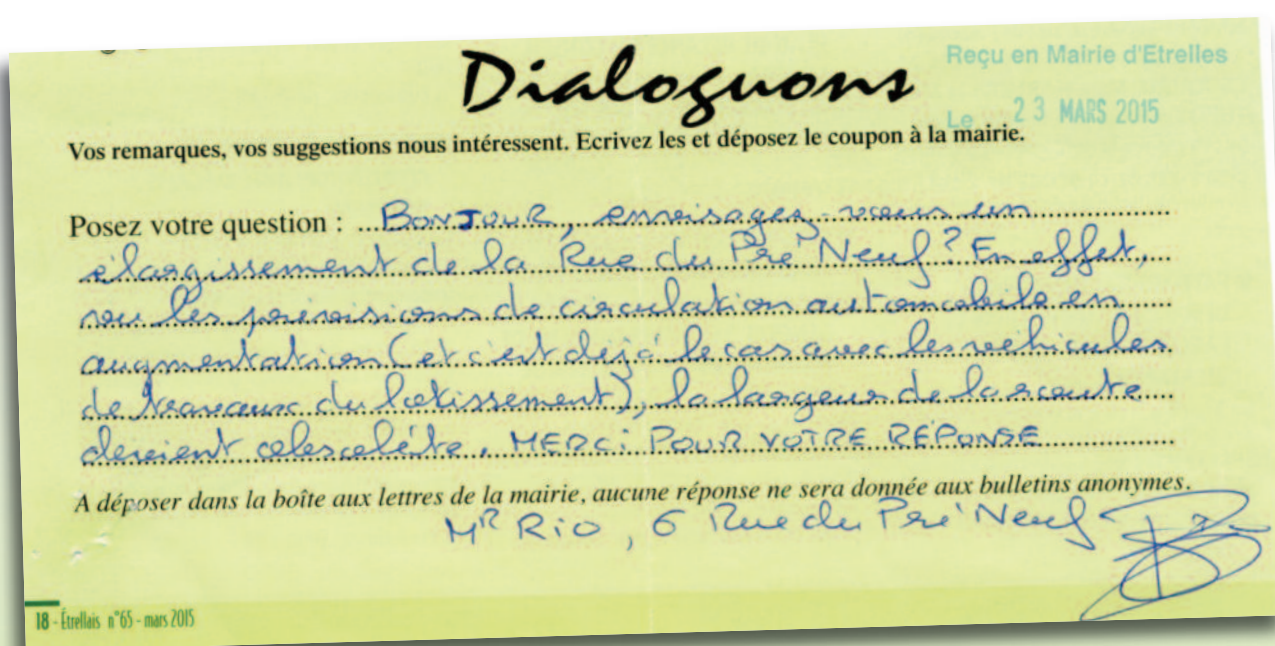 Dialoguons
Reçu en Mairie d'Etrelles
Le 23 MARS 2015
Vos remarques, vos suggestions nous intéressent. Ecrivez les et déposez le coupon à la mairie.
Posez votre question : BONJOUR, envisagez-vous un
élargissement de la Rue du Pré Neuf ? En effet,
vu les prévisions de circulation automobile en
augmentation (et c'est déjà le cas avec les véhicules
de travaux du lotissement), la largeur de la route
devient obsolète. MERCI POUR VOTRE RÉPONSE
A déposer dans la boîte aux lettres de la mairie, aucune réponse ne sera donnée aux bulletins anonymes.
MR RIO, 6 Rue du Pré Neuf
18 - Étrellais n°65 - mars 2015